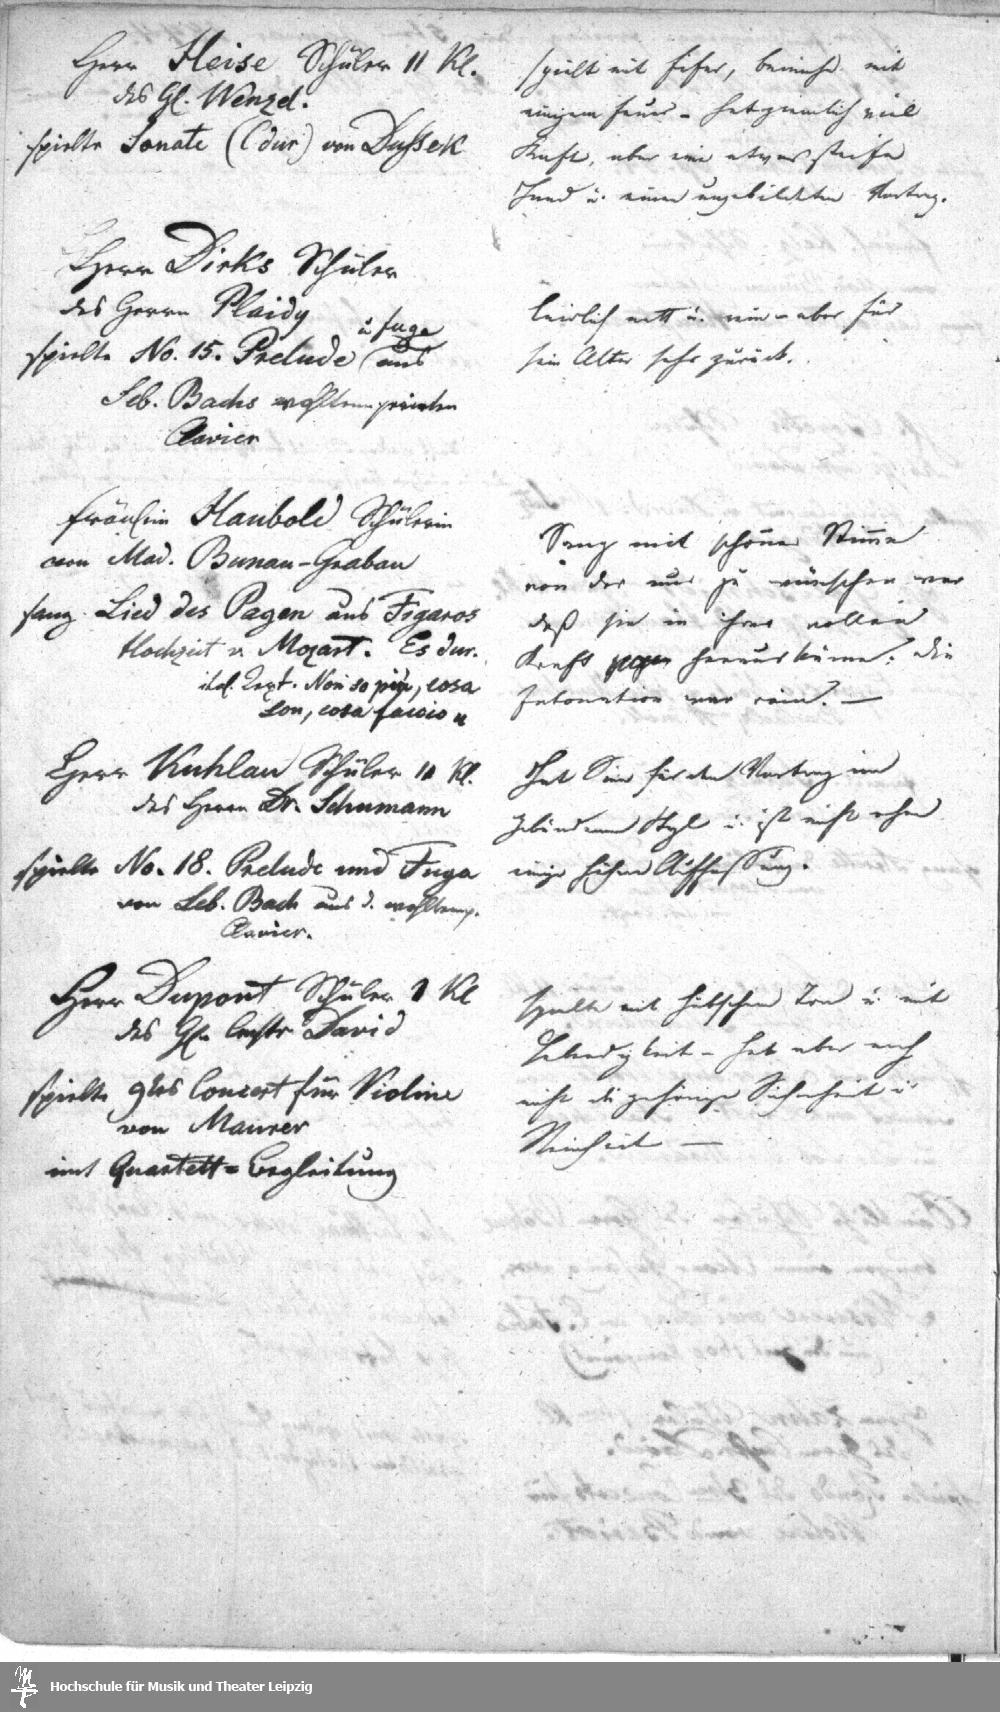 Herr Heise Schüler II Kl.
des H. Wenzel.
spielte Sonate (C dur) von Dussek
spielt mit Eifer, beinahe mit
einigem Feuer – hat ziemlich viel
Kraft, aber eine etwas steife
Hand u. einen ungebildeten Vortrag.
Herr Dirks Schüler
des Herrn Plaidy
spielte No. 15. Prelude u Fuge aus
Seb. Bachs wohltemperirten
Clavier
leidlich nett u. rein – aber für
sein Alter sehr zurück.
Fräulein Haubold Schülerin
von Mad. Bunau-Grabau
sang Lied des Pagen aus Figaros
Hochzeit v. Mozart. Es dur.
ital. Text. Non so più, cosa
son, cosa faccio
Sang mit schöner Stimme
von der nur zu wünschen war
daß sie in ihrer vollen
Kraft herauskäme. Die
Intonation war rein. —
Herr Kuhlau Schüler II Kl.
des Herrn Dr. Schumann
spielte No. 18. Prelude und Fuga
von Seb. Bach aus d. wohltemp.
Clavier.
Hat Sinn für den Vortrag im
gebundenen Styl u. ist nicht ohne
einige höhere Auffassung.
Herr Dupont Schüler I Kl
des H. David
spielte 9tes Concert für Violine
von Maurer
mit Quartett-Begleitung
spielte mit hübschem Ton u. mit
Lebendigkeit – hat aber noch
nicht die gehörige Sicherheit u
Reinheit —
Hochschule für Musik und Theater Leipzig